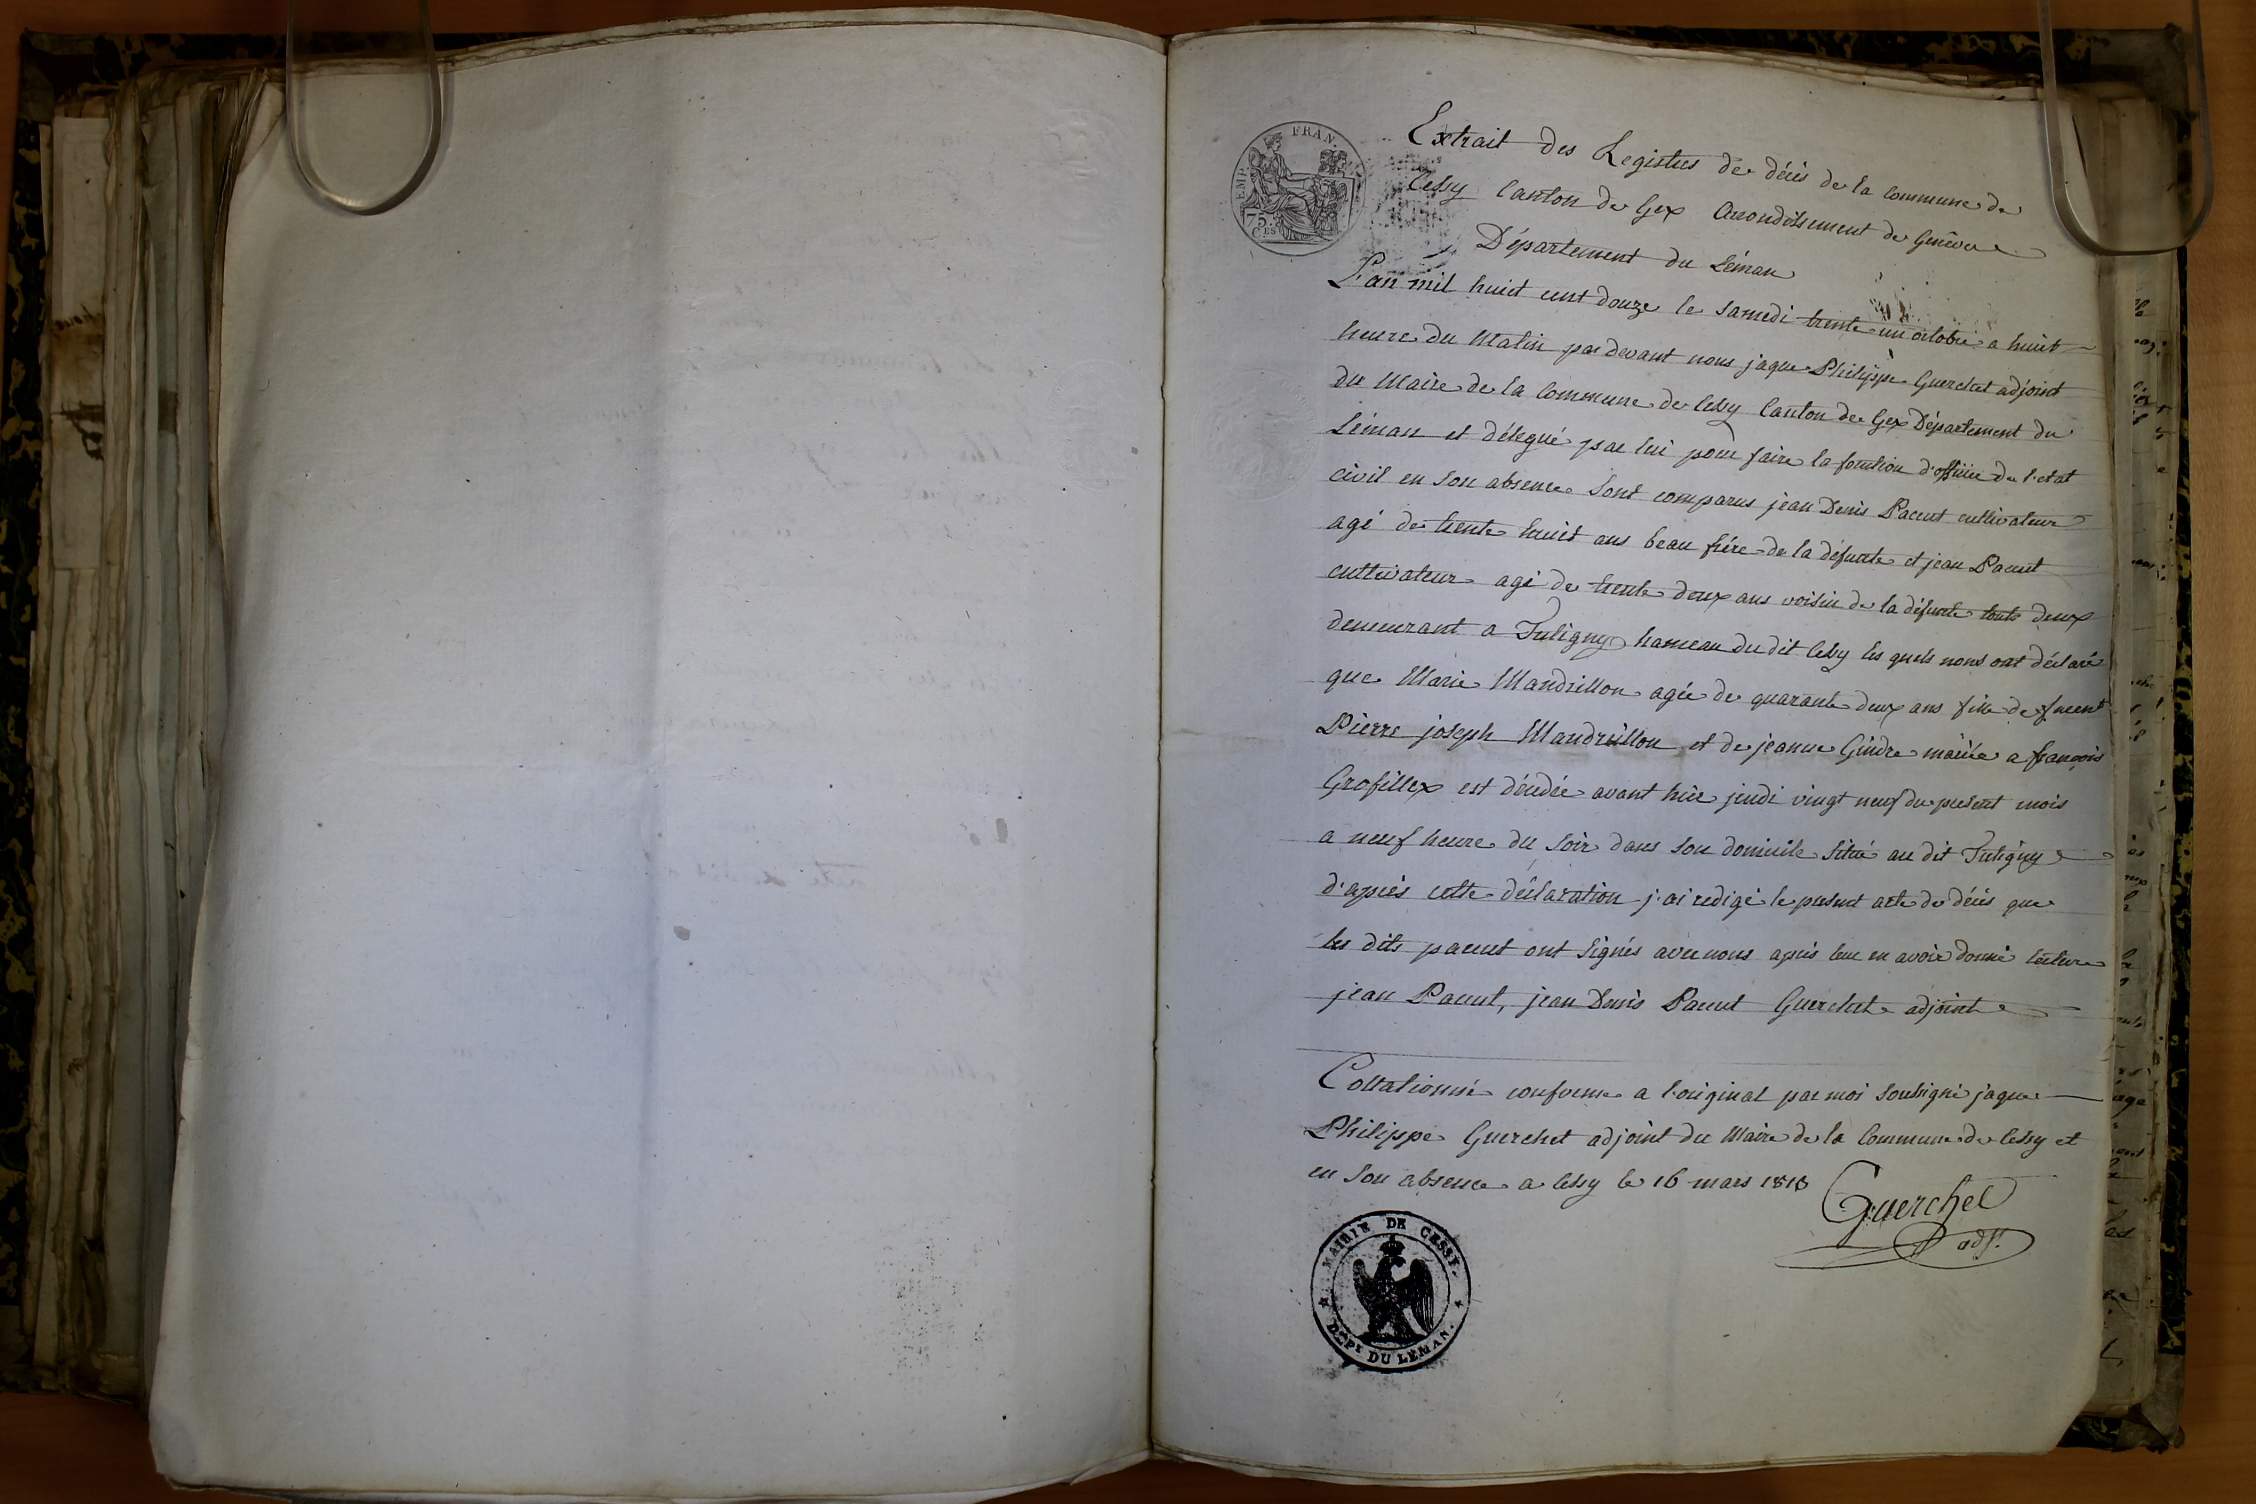 EMP. FRAN.
75. CES
Extrait des Registres de décès de la commune de
Cessy Canton de Gex Arrondissement de Genêve
Département du Léman
L'an mil huit cent douze le samedi trente un octobre a huit
heure du Matin par devant nous jaque Philippe Guerchet adjoint
du Maire de la Commune de Cessy Canton de Gex Département du
Léman et délegué par lui pour faire la fonction d'officier de l'etat
civil en son absence sont comparus jean Denis Pacout cultivateur
agé de trente huit ans beau frére de la défunte et jean Pacout
cultivateur agé de trente deux ans voisin de la défunte touts deux
demeurant a Tutigny hameau du dit Cessy les quels nous ont déclaré
que Marie Mandrillon agée de quarante deux ans fille de
Pierre joseph Mandrillon et de jeanne Gindre mariée a françois
Grofillex est décédée avant hier jeudi vingt neuf du present mois
a neuf heure du soir dans son domicile situé au dit Tutigny
d'après cette déclaration j'ai redigé le present acte de décès que
les dits pacout ont signés avec nous après leur en avoir donné lecture
jean Pacout, jean Denis Pacout Guerchet adjoint
Collationné conforme a l'original par moi soussigné jaque
Philippe Guerchet adjoint du Maire de la Commune de Cessy et
en son absence a Cessy le 16 mars 1813
Guerchet
adj.
MAIRIE DE CESSY.
DEPT DU LÉMAN.